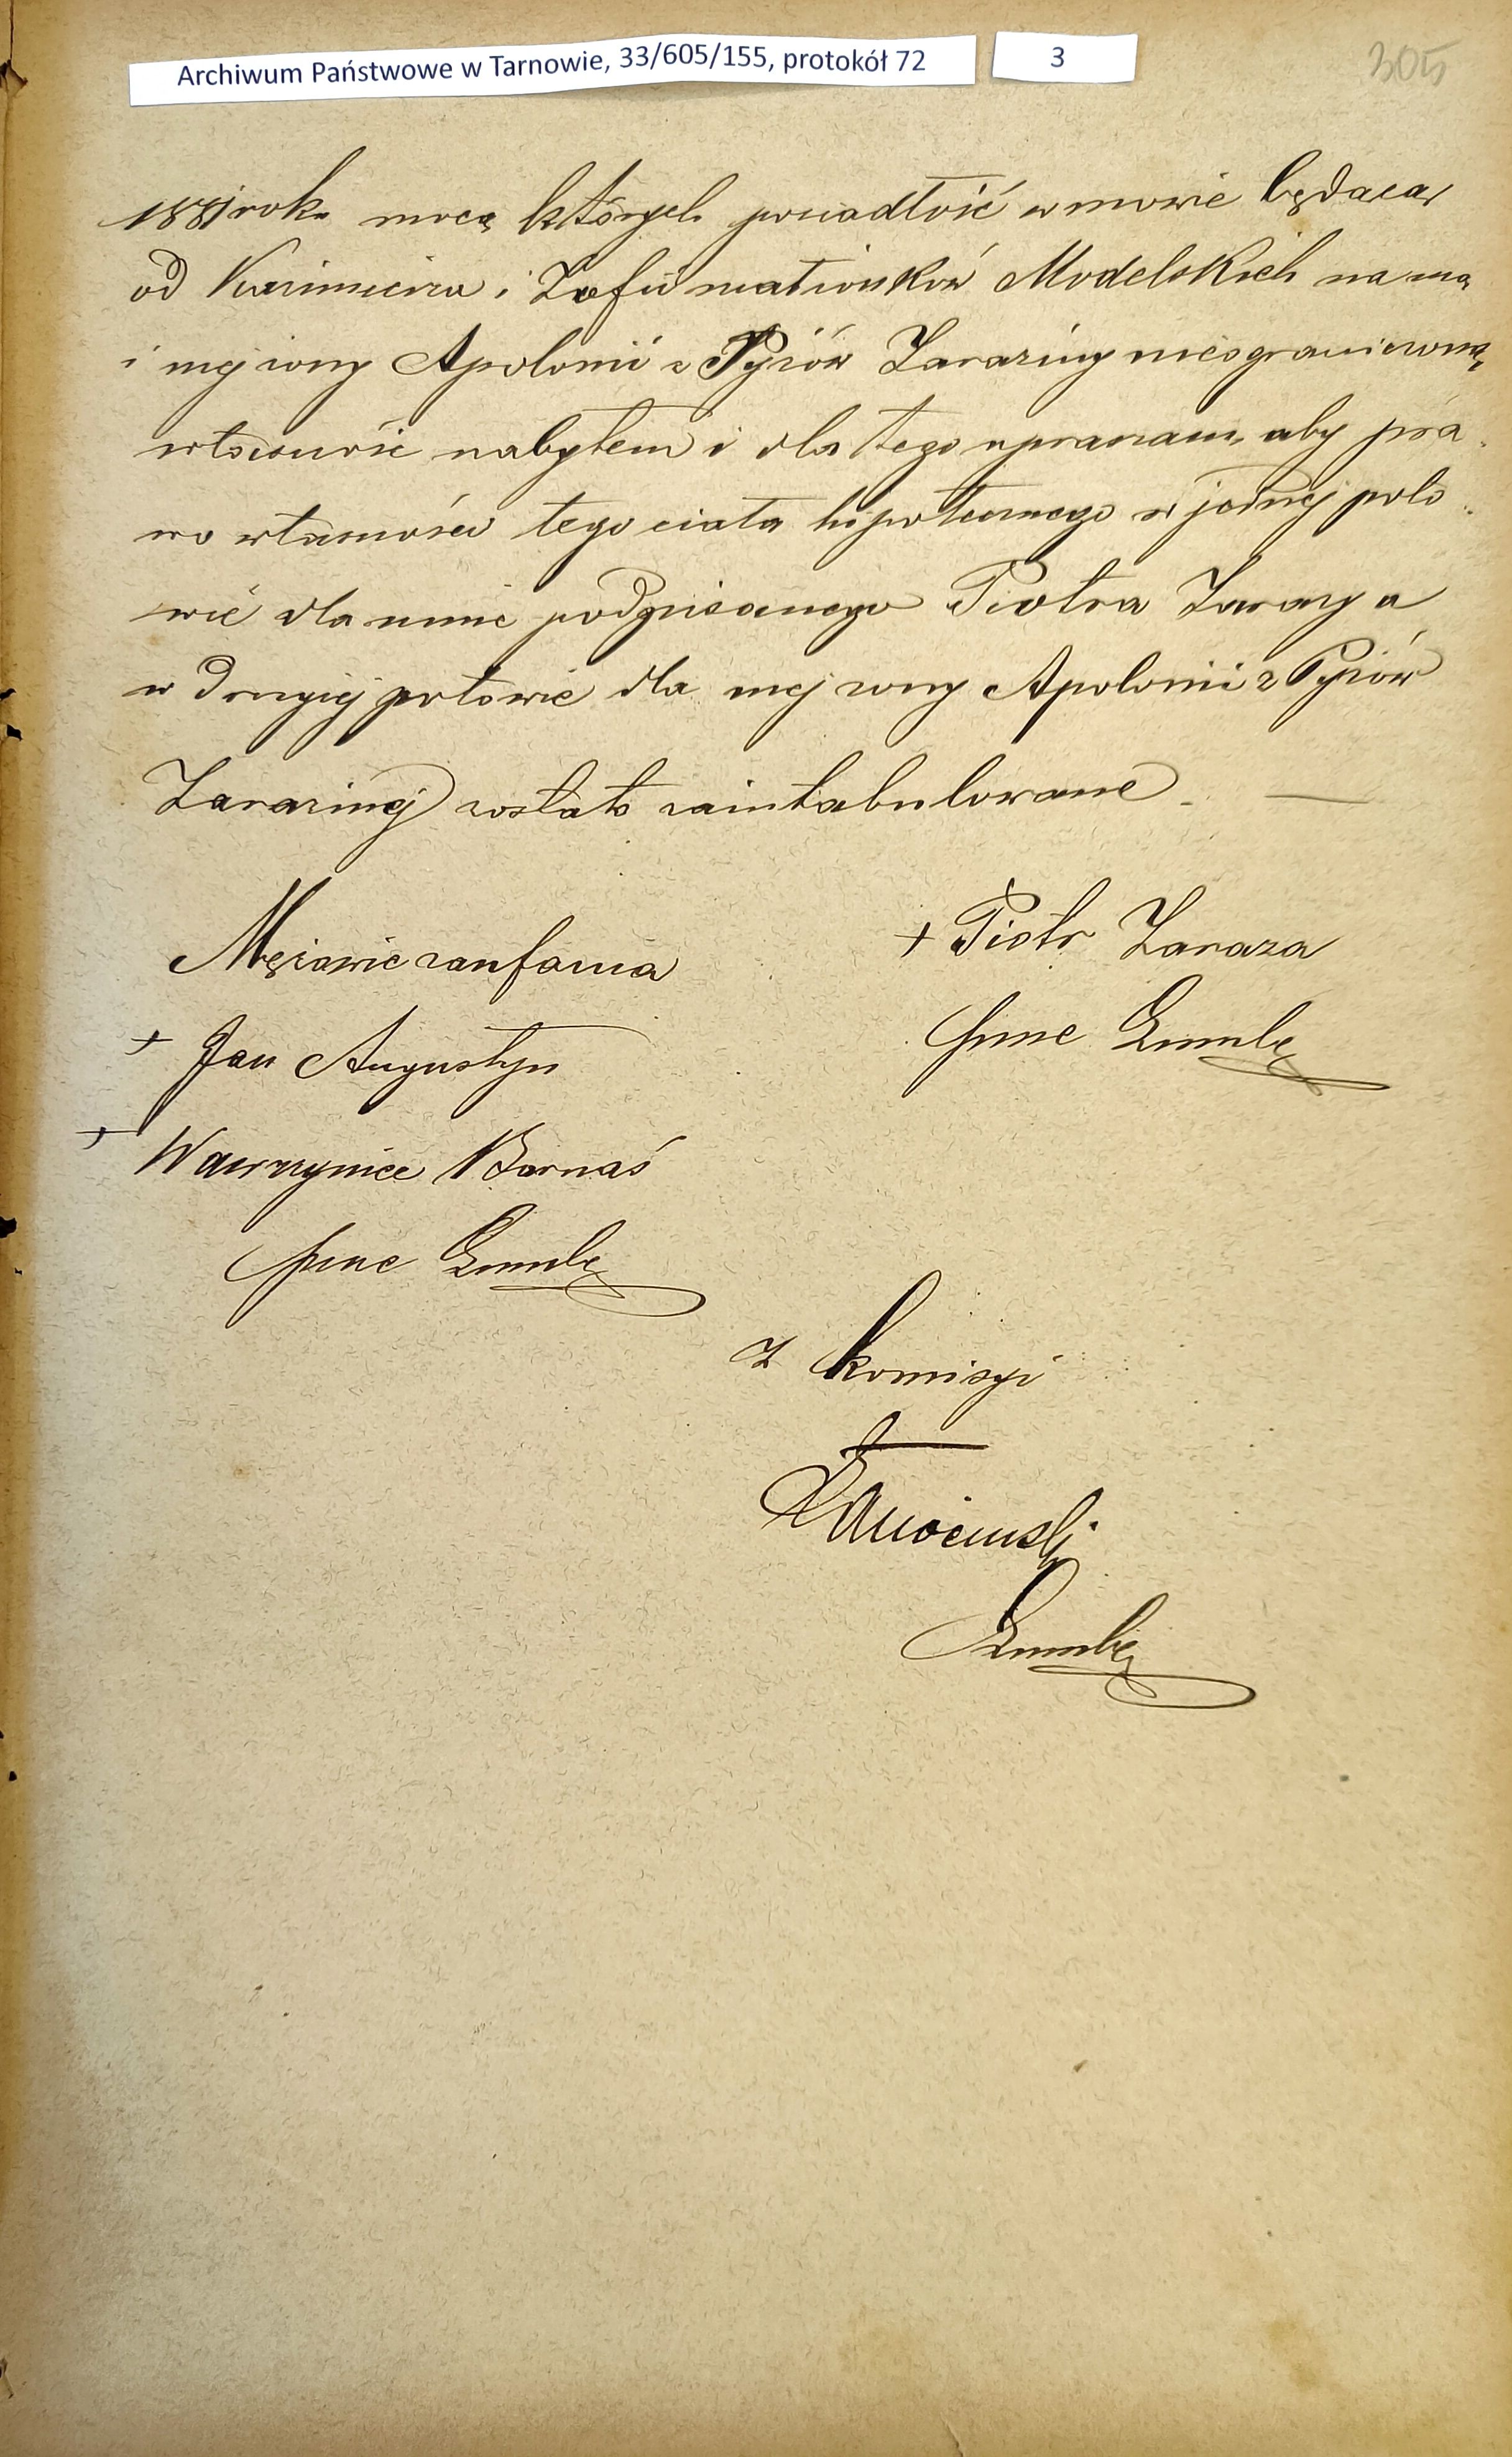 Archiwum Państwowe w Tarnowie, 33/605/155, protokół 72 3 305
1881 roku mocą których posiadłość w mowie będącą
od Kazimierza i Zofii małżonków Modelskich na mą
i mej żony Apolonii z Pyziów Zaraziny nieograniczoną
własność nabyłem i dla tego upraszam, aby pra
wo własności tego ciała hipotecznego w jednej poło
wie dla mnie podpisanego Piotra Zarazy a
w drugiej połowie dla mej żony Apolonii z Pyziów
Zaraziny zostało zaintabulowane. —
Mężowie zaufania
+ Piotr Zaraza
+ Jan Augustyn
+ Wawrzyniec Barnaś
Z komisyi